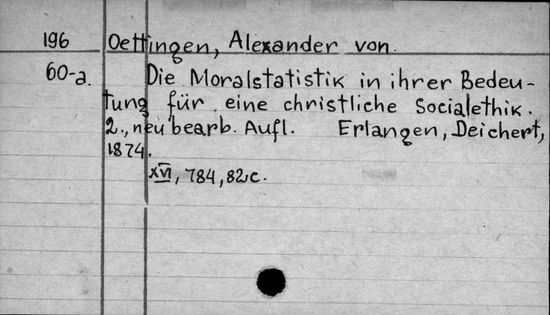 196 Oettingen, Alexander von.
60-a. Die Moralstatistik in ihrer Bedeu-
tung für eine christliche Socialethik.
2., neu bearb. Aufl. Erlangen, Deichert,
1874.
XVI, 784, 82 c.